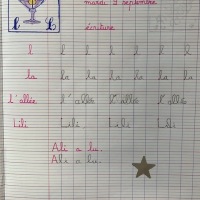 mardi 2 septembre
écriture
l L
l l l l l l l
la la la la la la la
l'allée l'allée l'allée l'allée
Lili Lili Lili Lili
Ali a lu.
Ali a lu.